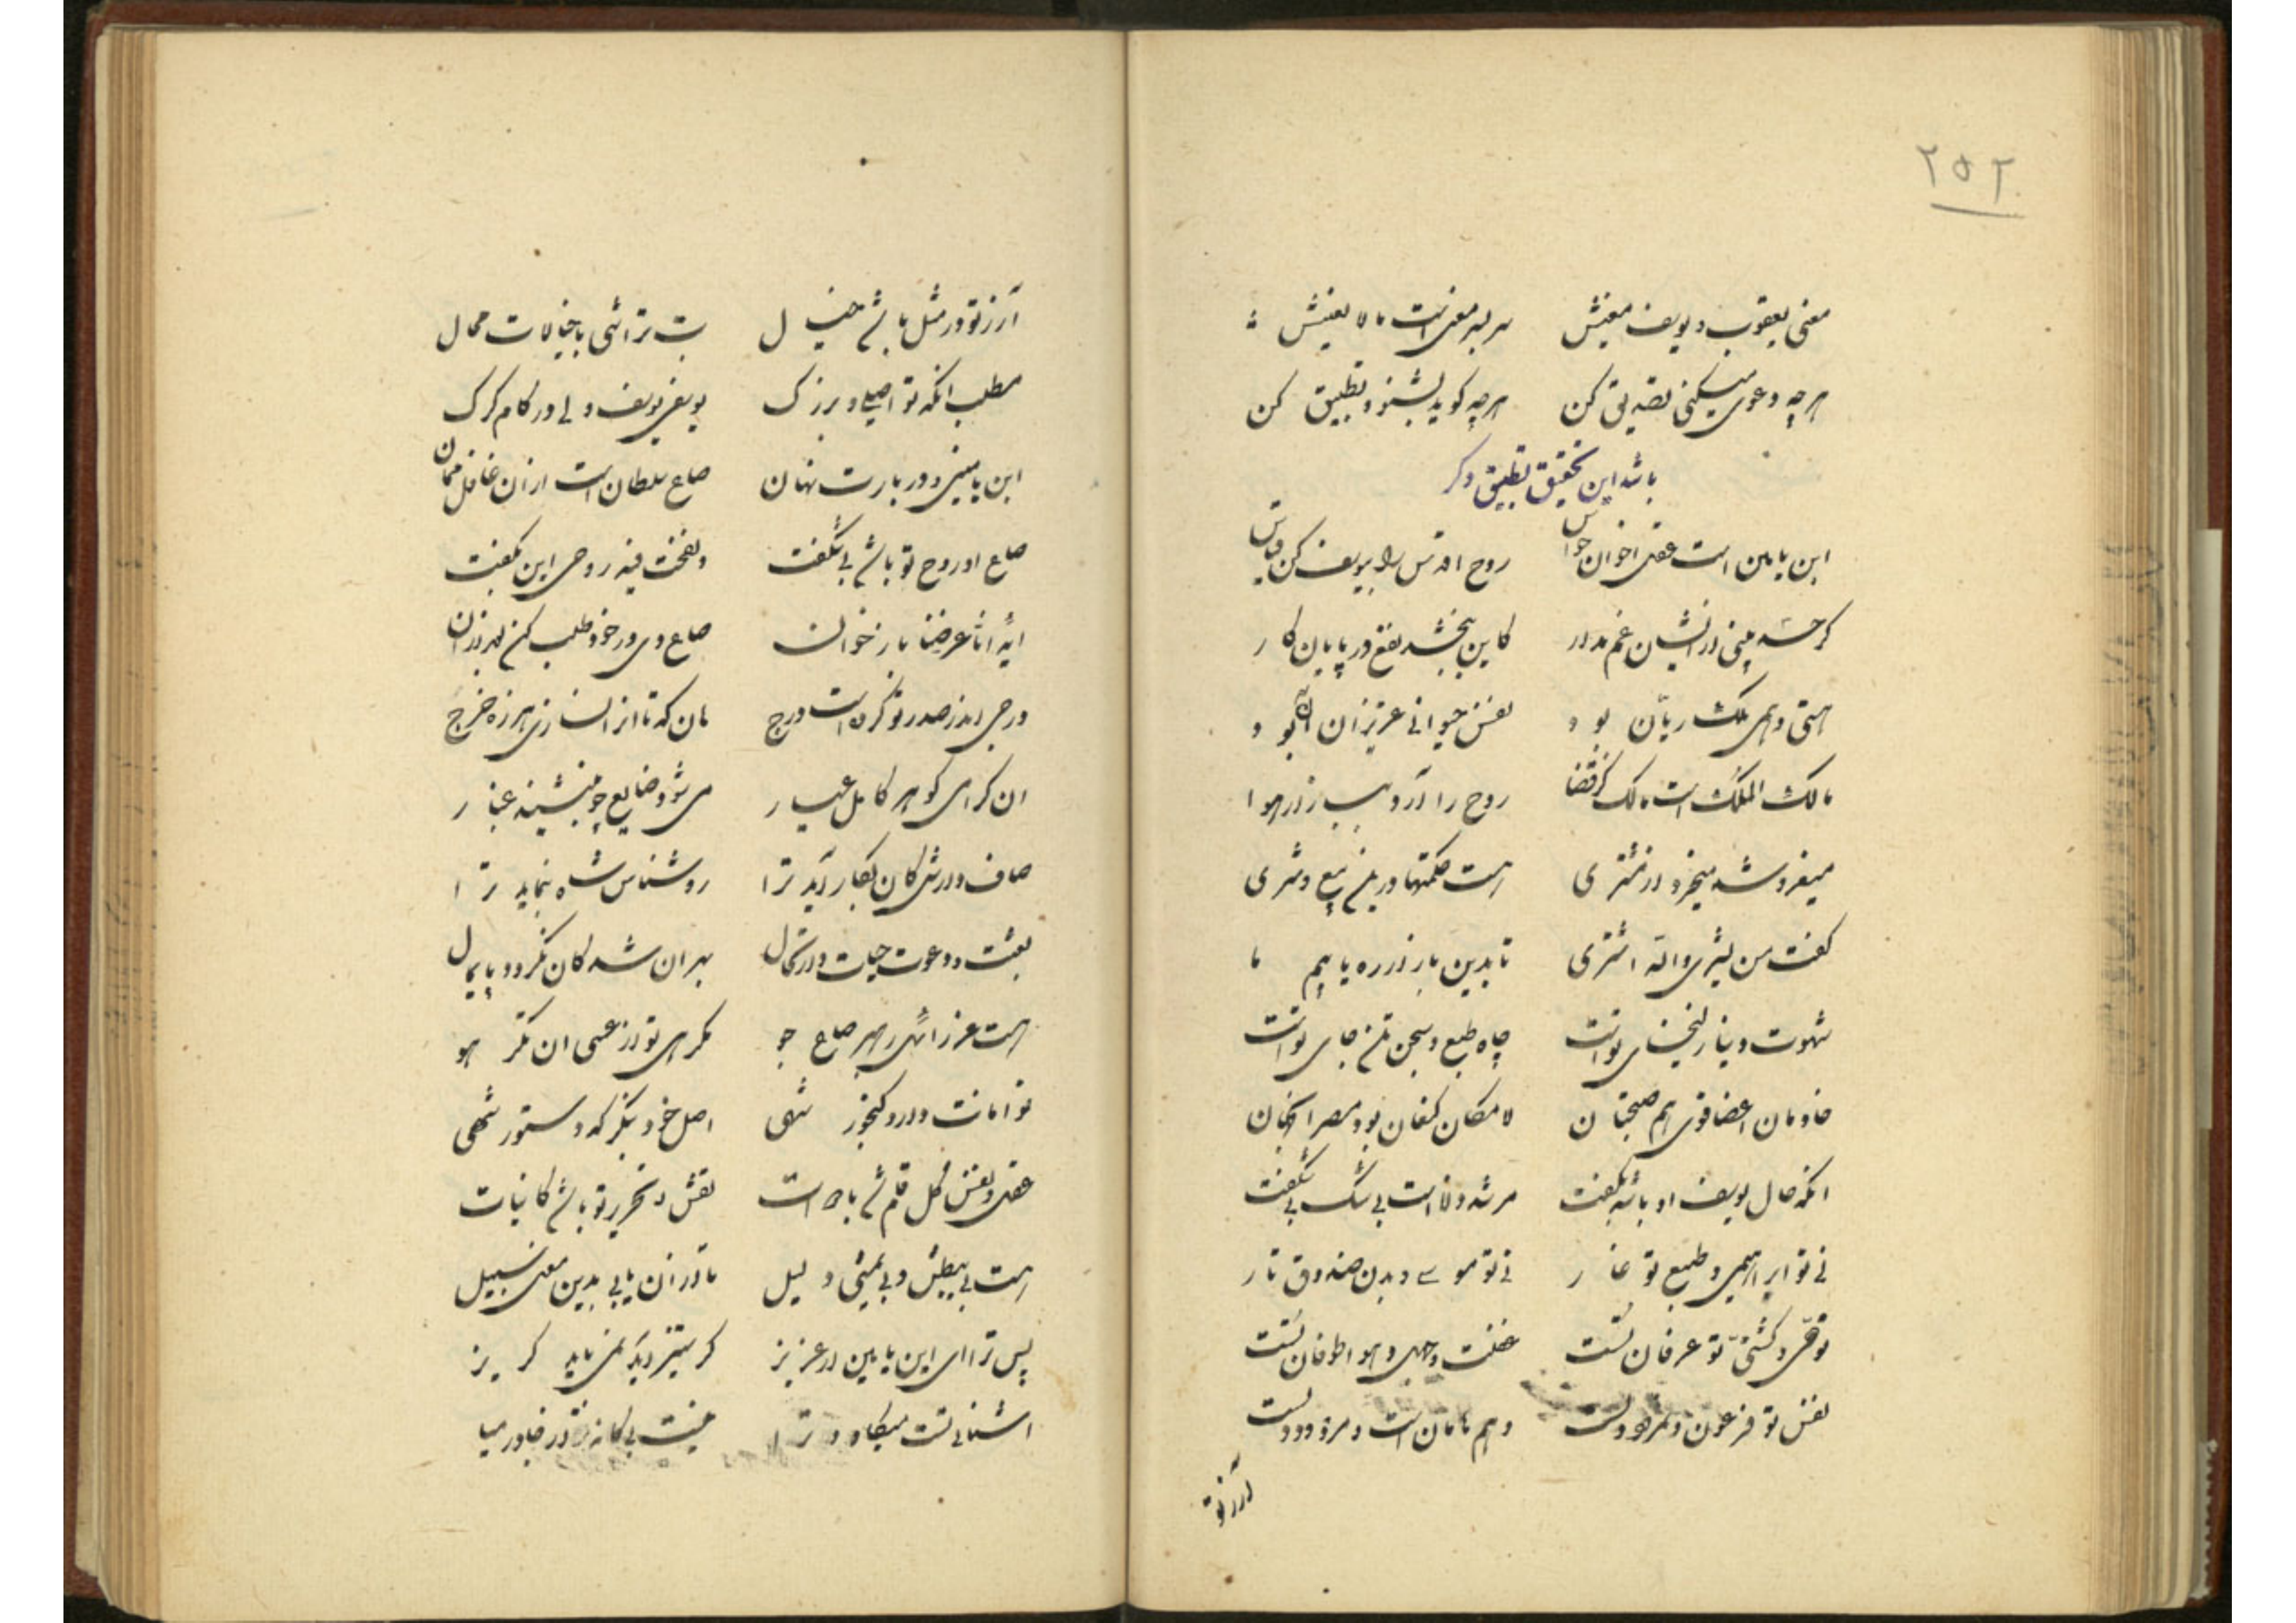 ۲۵۲
معنی یعقوب و یوسف معنیش سر بسر معنی است ما لا یعنیش
هرچه دعوی میکنی تصدیق کن هرچه گوید بشنو و تطبیق کن
باشد این تحقیق تطبیق دگر
ابن یامین است عقل اخوان حواس روح اقدس را بیوسف کن قیاس
گر حسد بینی از ایشان غم مدار کاین ببخشد نفع در پایان کار
هستی وهمی ملک ریان بود نفس حیوانی عزیز آن بود
مالک الملک است مالک کز قضا روح را آرد ببازار هوا
میفروشد میخرد از مشتری هست حکمتها در بیع و شری
گفت من یشری و الله اشتری تا بدین بازار ره یابیم ما
شهوت دنیا زلیخای تو است چاه طبع و سجن تن جای تو است
خادمان اعضا قوی هم صحبتان لامکان کنعان بود مصر این جهان
آنکه حال یوسف او باشد بگفت مرشد داناست بی شک بی شگفت
نی تو ابراهیمی و طبع تو نار نی تو موسی و بدن صندوق تار
نوحی و کشتی تو عرفان تست غفلت و جهل و هوا طوفان تست
نفس تو فرعون و نمرود و است وهم هامان است و مردود و است
آرزو
آرزو در مثل باشد خیال بت تراشی با خیالات محال
مطلب آنکه تو اصلی و بزرگ یوسفی یوسف ولی در کام گرگ
ابن یامینی و در بارت نهان صاع سلطان است از آن غافل ممان
صاع او روح تو باشد بی شگفت و نفخت فیه روحی این بگفت
آیه انا عرضنا باز خوان صاع وی در خود طلب کن هر زمان
در جی اندر صدر تو کرده است درج هان که تا او را نسازی هرزه خرج
آن گرامی گوهر کامل عیار می شود ضایع چو بنشیند غبار
صاف دارش کان بکار آید ترا روشناس شاه بنماید ترا
بعثت و دعوت حیات و ارتحال بهر آن شد کان نگردد پایمال
هست عزرائیل رهبر صاع جو گمرهی تو از عمی آن مگر هو
تو امانت دار و گنجور شهی اصل خود بنگر که دستور شهی
عقل و نفس کل قلم شد با دوات نقش و تحریر تو باشد کاینات
هست بی یبطش و بی یمشی دلیل تا از آن یابی بدین معنی سبیل
پس ترا ای ابن یامین عزیز گر ستیز آید نمی باید گریز
آشنای تست میکاود ترا نیست بیگانه